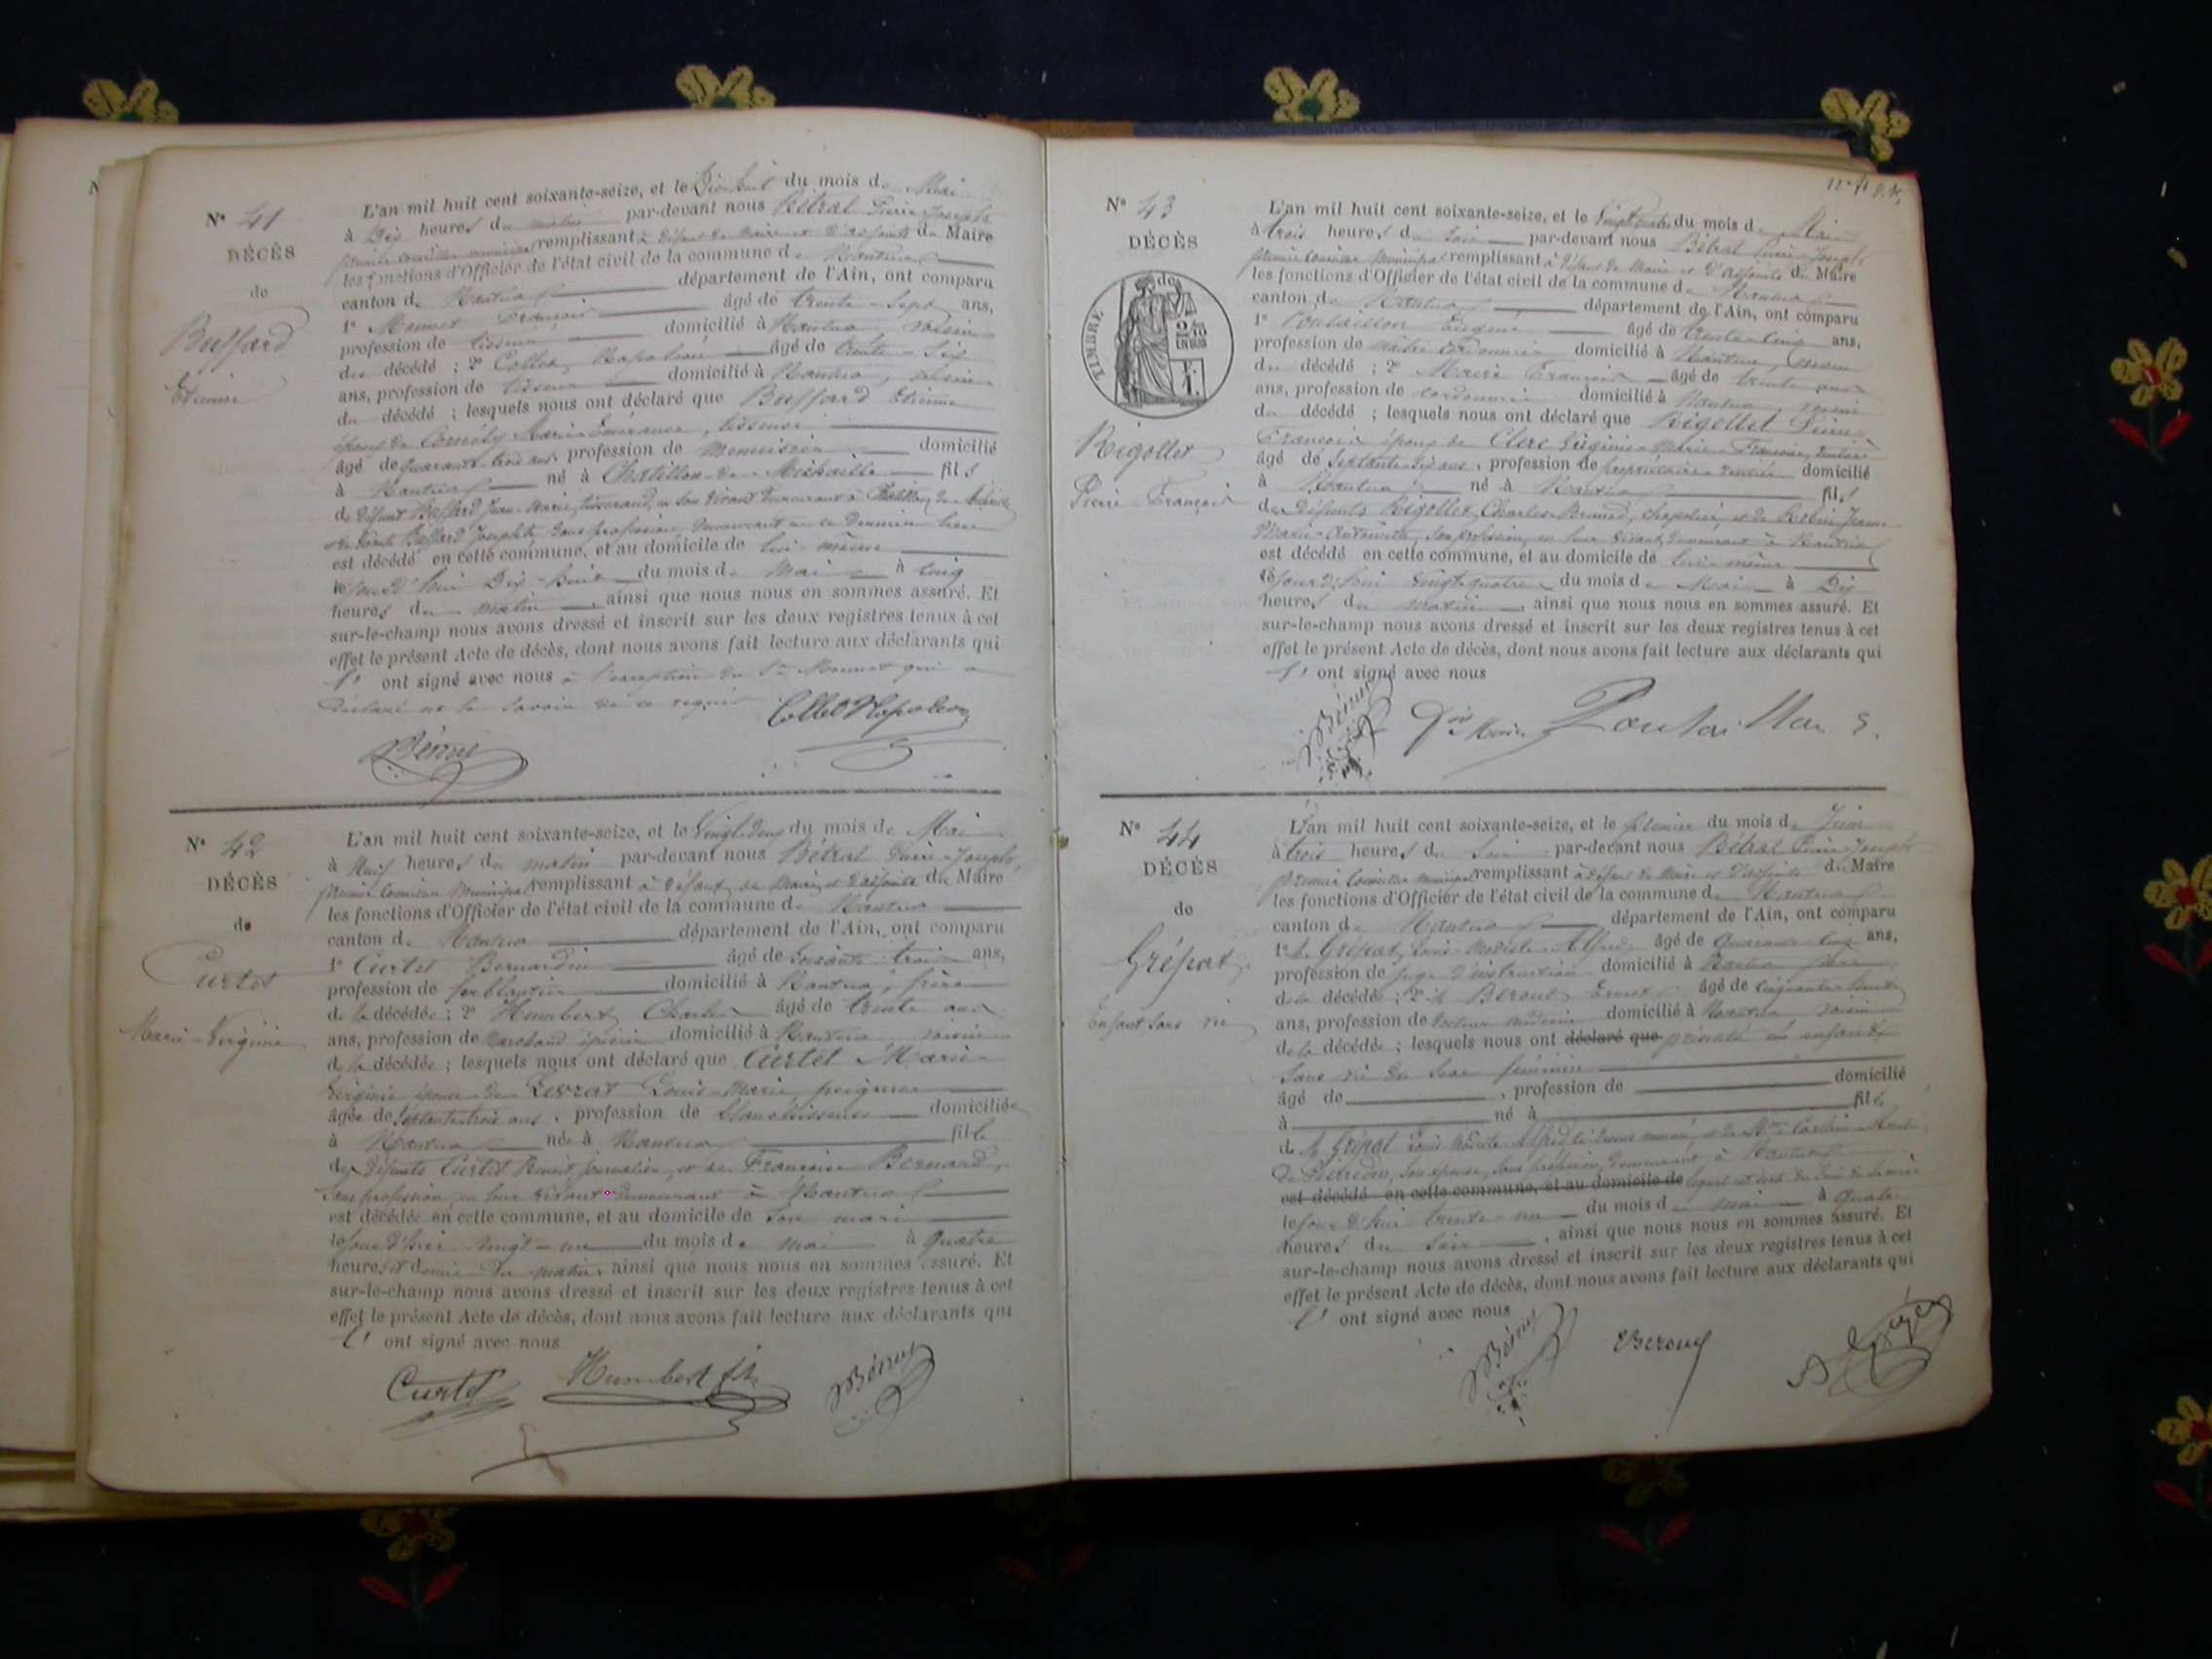 N° 41
DÉCÈS
de
Buffard
Etienne
L'an mil huit cent soixante-seize, et le Dix-huit du mois de Mai
à Dix heures du matin par-devant nous Bétral Pierre-Joseph
premier conseiller municipal remplissant à défaut de Maire et d'adjoints du Maire
les fonctions d'Officier de l'état civil de la commune de Nantua
canton de Nantua département de l'Ain, ont comparu
1° Monnet François âgé de trente-sept ans,
profession de tisseur domicilié à Nantua voisin
du décédé ; 2° Collet Napoléon âgé de trente-six
ans, profession de tisseur domicilié à Nantua, voisin
du décédé ; lesquels nous ont déclaré que Buffard Etienne
époux de Marie tisseuse
âgé de quarante-trois ans, profession de Menuisier domicilié
à Nantua né à Chatillon-de-Michaille fils
de défunt Buffard Jean-Marie, en son vivant demeurant à Chatillon-de-Michaille
et de Josephte, sans profession, demeurant en ce dernier lieu
est décédé en cette commune, et au domicile de lui-même
le jour d'hui Dix-huit du mois de Mai à cinq
heures du matin, ainsi que nous nous en sommes assuré. Et
sur-le-champ nous avons dressé et inscrit sur les deux registres tenus à cet
effet le présent Acte de décès, dont nous avons fait lecture aux déclarants qui
l' ont signé avec nous à l'exception du Sr Monnet qui a
déclaré ne le savoir de ce requis
Collet Napoléon
N° 42
DÉCÈS
de
Curtet
Marie-Virginie
L'an mil huit cent soixante-seize, et le Vingt-deux du mois de Mai
à Neuf heures du matin par-devant nous Bétral Pierre-Joseph,
premier Conseiller Municipal remplissant à défaut de Maire et d'adjoints du Maire
les fonctions d'Officier de l'état civil de la commune de Nantua
canton de Nantua département de l'Ain, ont comparu
1° Curtet Bernardin âgé de soixante-trois ans,
profession de ferblantier domicilié à Nantua, frère
de la décédée ; 2° Humbert Charles âgé de trente ans
ans, profession de Marchand épicier domicilié à Nantua voisin
de la décédée ; lesquels nous ont déclaré que Curtet Marie-
Virginie épouse de Levrat Louis-Marie, peigneur
âgée de septante-trois ans, profession de blanchisseuse domiciliée
à Nantua née à Nantua fille
des défunts Curtet Benoit journalier, et de Françoise Bernard,
sans profession, en leur vivant demeurant à Nantua
est décédée en cette commune, et au domicile de son mari
le jour d'hier vingt-un du mois de mai à quatre
heures et demie du matin, ainsi que nous nous en sommes assuré. Et
sur-le-champ nous avons dressé et inscrit sur les deux registres tenus à cet
effet le présent Acte de décès, dont nous avons fait lecture aux déclarants qui
l' ont signé avec nous
Curtet Humbert
N° 43
DÉCÈS
de
TIMBRE
Rigollet
Pierre-François
L'an mil huit cent soixante-seize, et le Vingt-quatre du mois de Mai
à trois heures du soir par-devant nous Bétral Pierre-Joseph
premier Conseiller Municipal remplissant à défaut de Maire et d'adjoints du Maire
les fonctions d'Officier de l'état civil de la commune de Nantua
canton de Nantua département de l'Ain, ont comparu
1° Poutaillon Eugène âgé de trente-cinq ans,
profession de maître cordonnier domicilié à Nantua, voisin
du décédé ; 2° Maire François âgé de trente ans
ans, profession de cordonnier domicilié à Nantua, voisin
du décédé ; lesquels nous ont déclaré que Rigollet Pierre-
François époux de Clerc Virginie-Marie-Françoise, rentière
âgé de septante-six ans, profession de propriétaire-rentier domicilié
à Nantua né à Nantua fils
des défunts Rigollet, Charles-Bruno, chapelier, et de Robin Jeanne-
Marie-Antoinette, sans profession, en leur vivant demeurant à Nantua
est décédé en cette commune, et au domicile de lui-même
le jour d'hui vingt-quatre du mois de Mai à Dix
heures du matin, ainsi que nous nous en sommes assuré. Et
sur-le-champ nous avons dressé et inscrit sur les deux registres tenus à cet
effet le présent Acte de décès, dont nous avons fait lecture aux déclarants qui
l' ont signé avec nous
N° 44
DÉCÈS
de
Grépat
Enfant sans vie
L'an mil huit cent soixante-seize, et le premier du mois de Juin
à trois heures du soir par-devant nous Bétral Pierre-Joseph
premier Conseiller municipal remplissant à défaut de Maire et d'adjoints du Maire
les fonctions d'Officier de l'état civil de la commune de Nantua
canton de Nantua département de l'Ain, ont comparu
1° M. Grépat, Louis-Modeste-Alfred, âgé de quarante-cinq ans,
profession de juge d'instruction domicilié à Nantua père
de la décédée ; 2° M. Béroud Ernest âgé de cinquante-huit
ans, profession de docteur médecin domicilié à Nantua voisin
de la décédée ; lesquels nous ont déclaré que présenté un enfant
sans vie du sexe féminin
âgé de , profession de domicilié
à né à fille
de M. Grépat Louis-Modeste-Alfred ci-dessus nommé, et de Mme
son épouse, sans profession, demeurant à Nantua
est décédé en cette commune, et au domicile de lequel est sorti du sein de sa mère
le jour d'hier trente-un du mois de mai à quatre
heures du soir, ainsi que nous nous en sommes assuré. Et
sur-le-champ nous avons dressé et inscrit sur les deux registres tenus à cet
effet le présent Acte de décès, dont nous avons fait lecture aux déclarants qui
l' ont signé avec nous